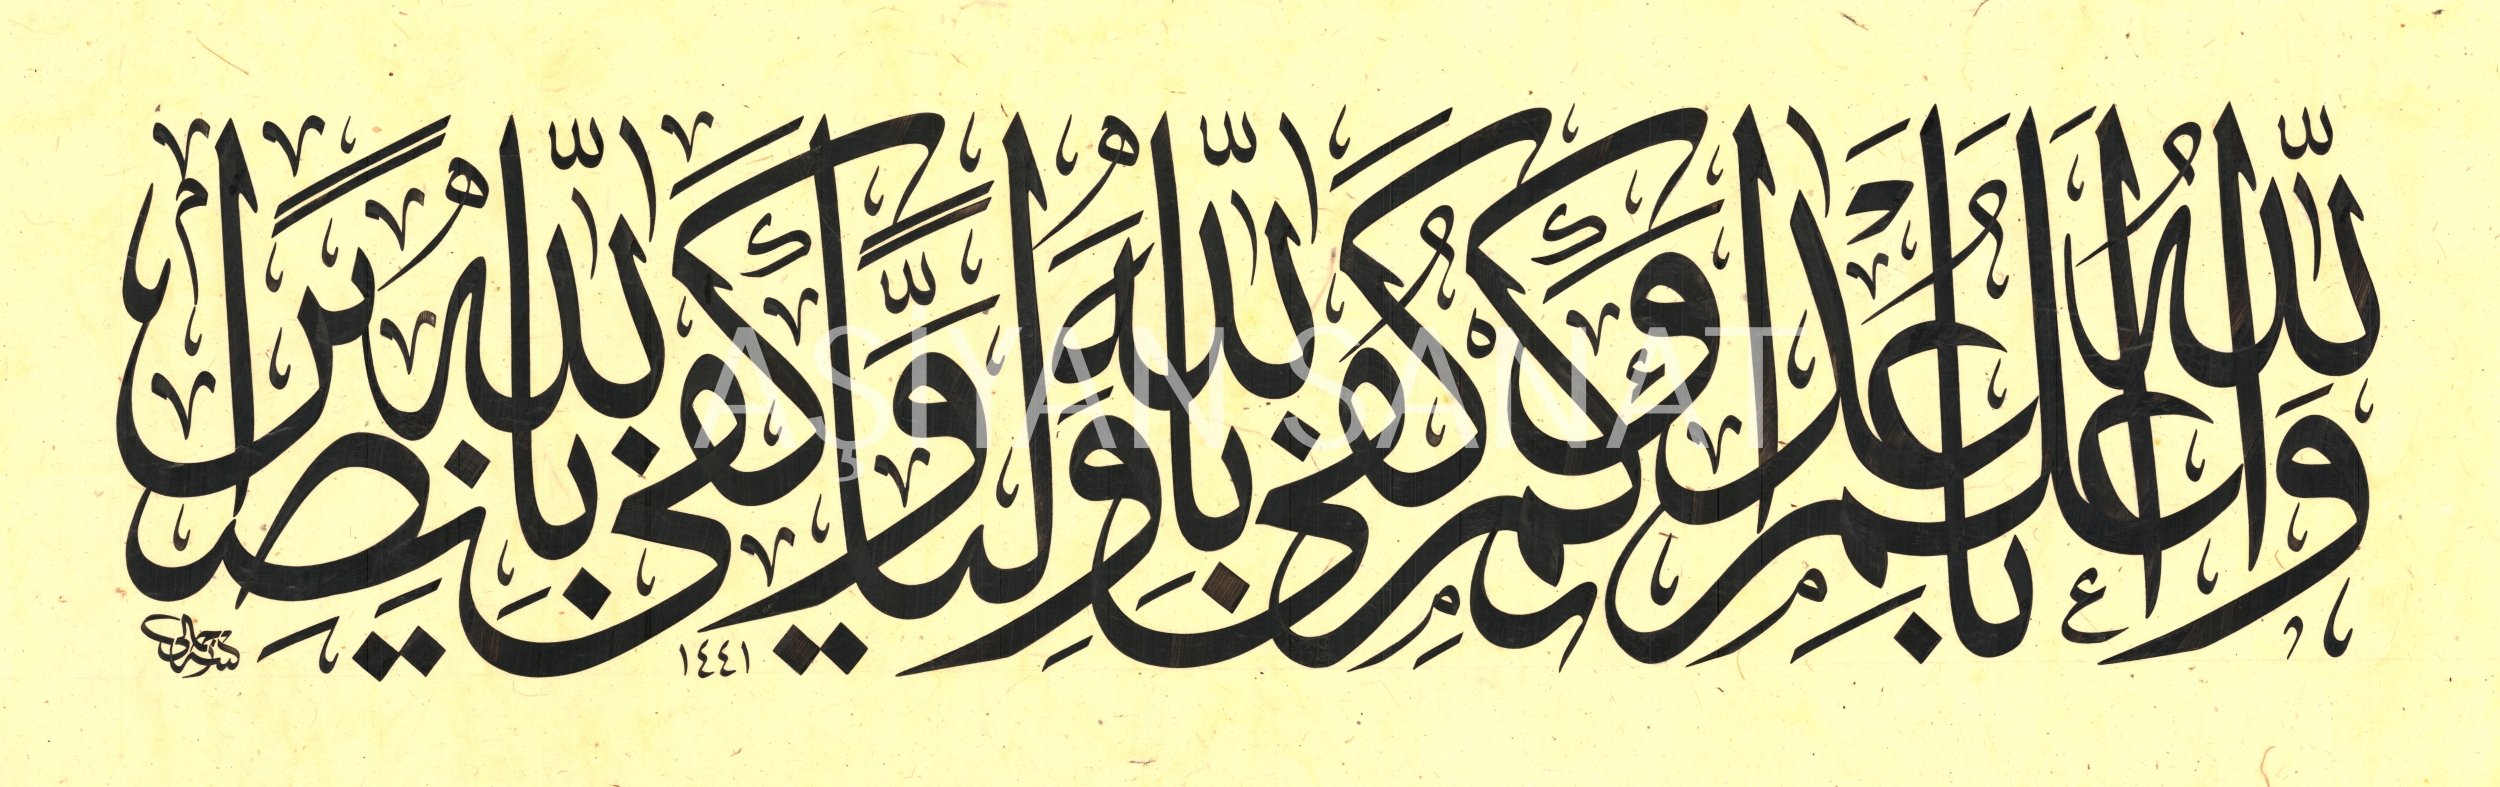 وَاللَّهُ أَعْلَمُ بِأَعْدَائِكُمْ وَكَفَى بِاللَّهِ وَلِيًّا وَكَفَى بِاللَّهِ نَصِيرًا
١٤٤١
AŞİYAN SANAT